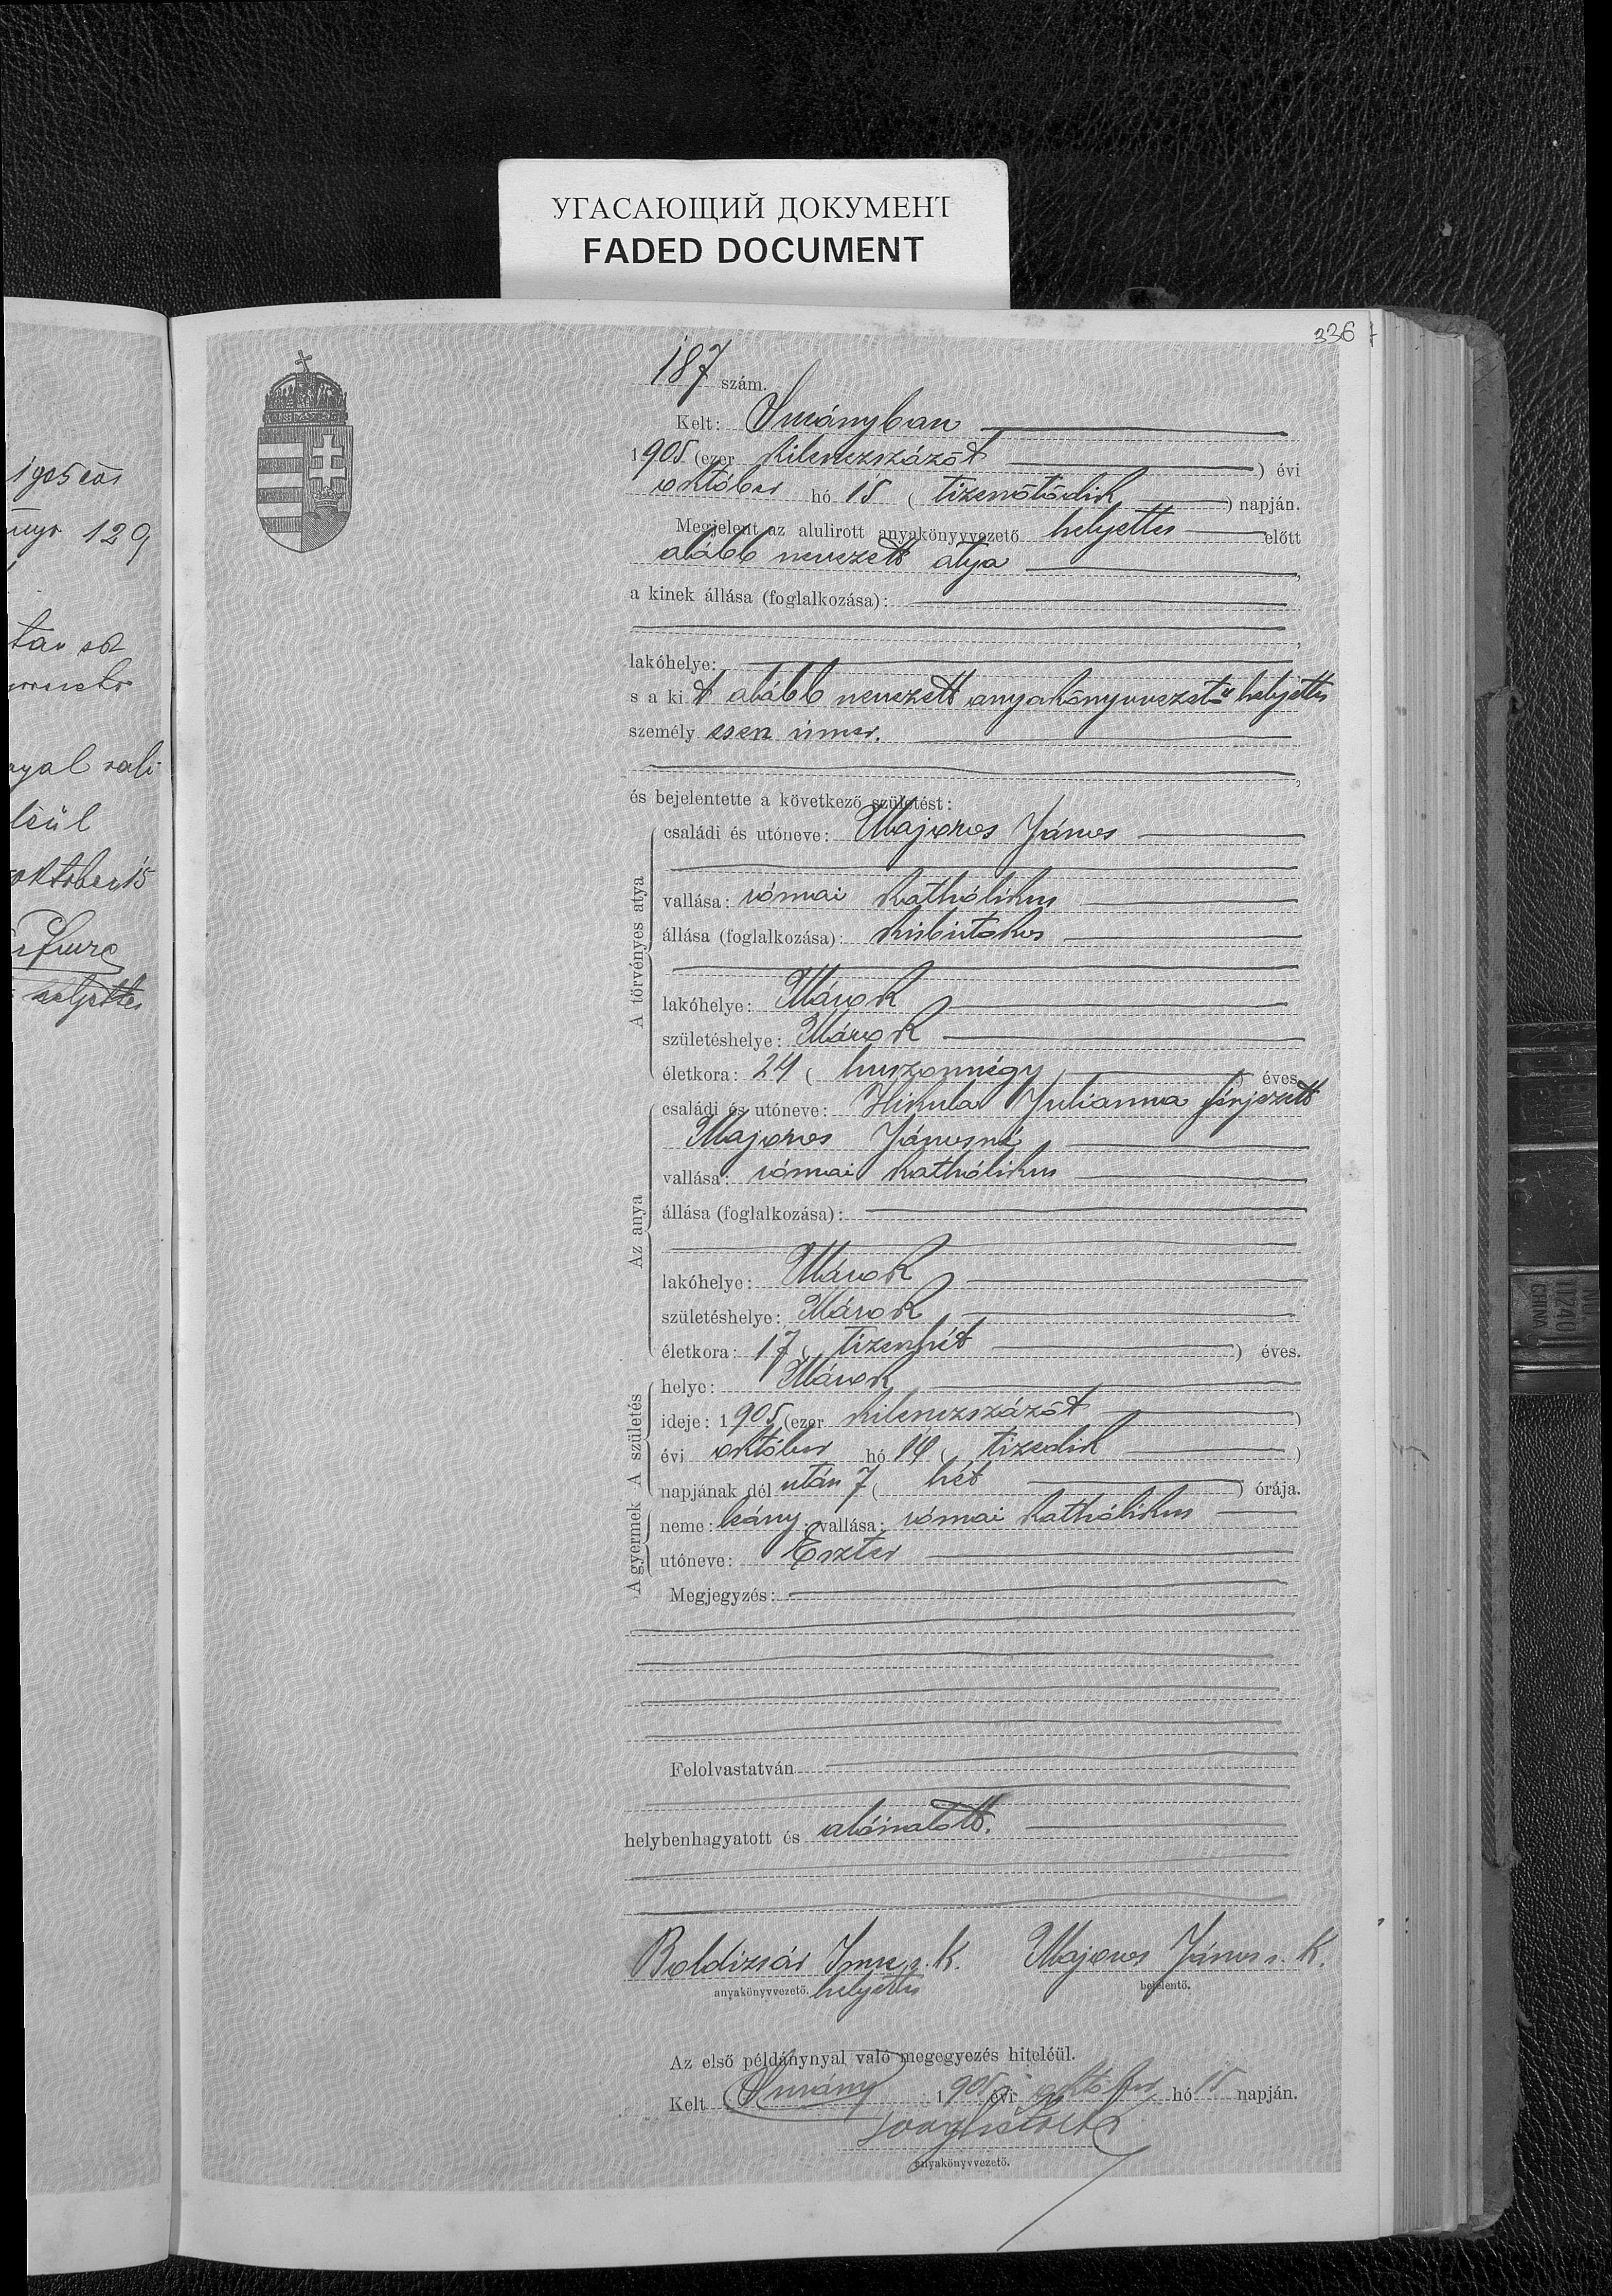 УГАСАЮЩИЙ ДОКУМЕНТ
FADED DOCUMENT
336
1905
129
október 15
helyettes
187 szám.
Kelt: Surányban
1905 (ezer kilenczszázöt) évi
október hó 15 (tizenötödik) napján.
Megjelent az alulirott anyakönyvvezető helyettes előtt
alább nevezett atya,
a kinek állása (foglalkozása):
lakóhelye:
s a kit alább nevezett anyakönyvvezető helyettes
személyesen ismer.
és bejelentette a következő születést:
A törvényes atya
családi és utóneve: Majoros János
vallása: római katholikus
állása (foglalkozása): kisbirtokos
lakóhelye: Márok
születéshelye: Márok
életkora: 24 (huszonnégy) éves.
Az anya
családi és utóneve: Hikula Julianna férjezett
Majoros Jánosné
vallása: római katholikus
állása (foglalkozása):
lakóhelye: Márok
születéshelye: Márok
életkora: 17 (tizenhét) éves.
A születés
helye: Márok
ideje: 1905 (ezer kilenczszázöt)
évi október hó 10 (tizedik)
napjának dél után 7 (hét) órája.
A gyermek
neme: leány; vallása: római katholikus
utóneve: Eszter
Megjegyzés:
Felolvastatván
helybenhagyatott és aláiratott.
Boldizsár Imre s. k. Majoros János s. k.
anyakönyvvezető. helyettes bejelentő.
Az első példánynyal való megegyezés hiteléül.
Kelt Surány 1905 évi október hó 15 napján.
anyakönyvvezető.